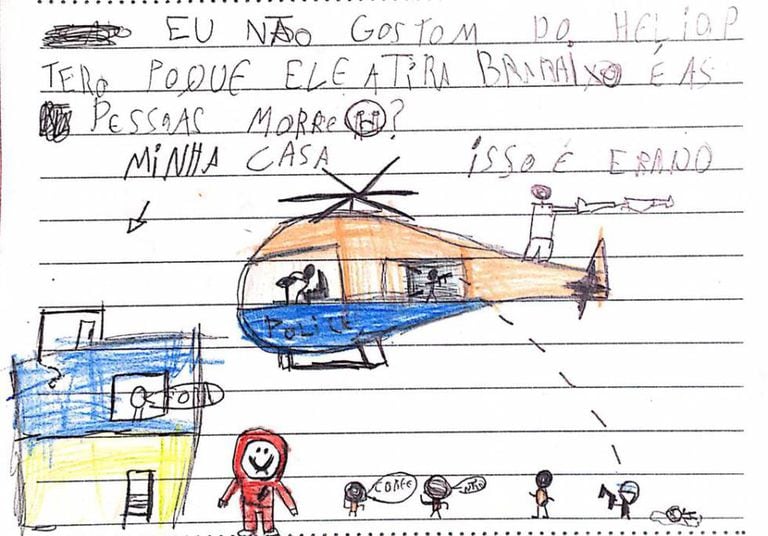 EU NÃO GOSTOM DO HELIOP
TERO POQUE ELE ATIRA É AS
PESSOAS MORRE ?
MINHA CASA ISSO É ERADO
POLICE
CORRE
NÃO